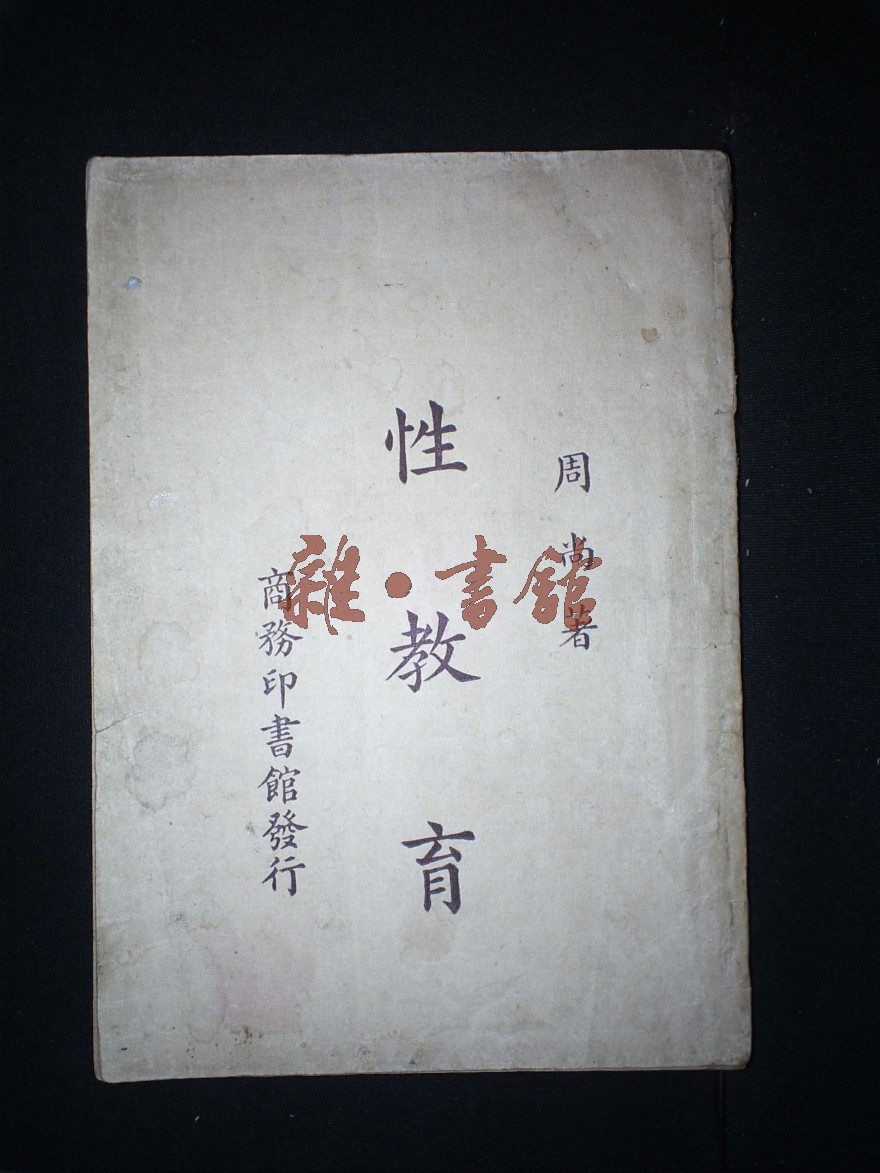 周尚著
性教育
商務印書館發行
雜·書館